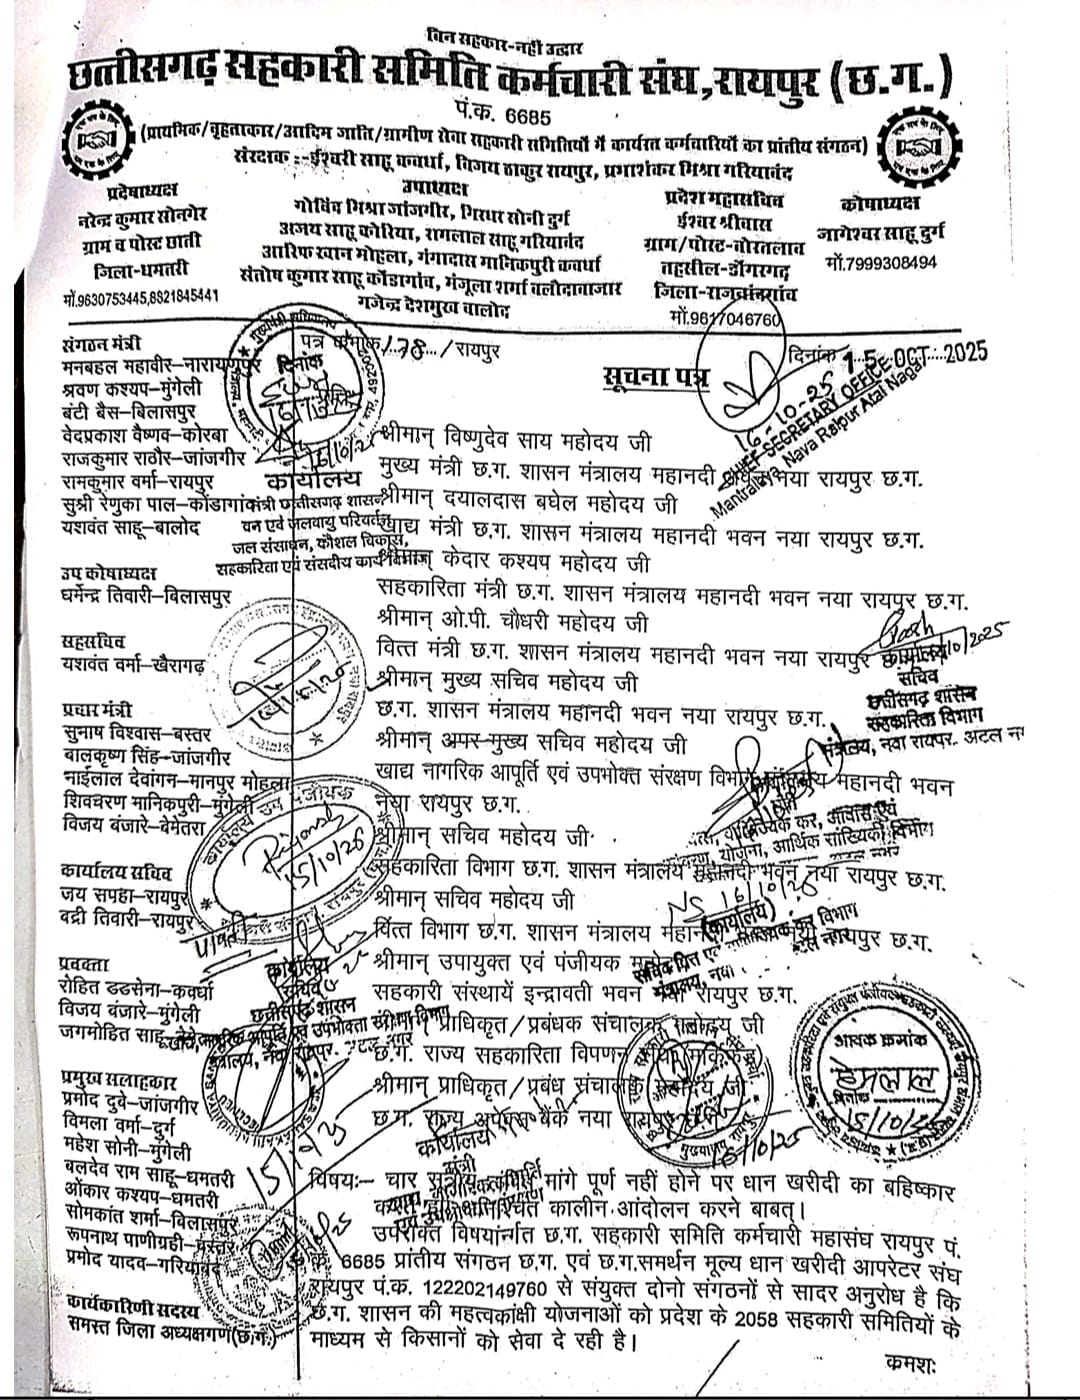 बिन सहकार-नहीं उद्धार
छत्तीसगढ़ सहकारी समिति कर्मचारी संघ, रायपुर (छ.ग.)
पं.क. 6685
(प्राथमिक/वृहताकार/आदिम जाति/ग्रामीण सेवा सहकारी समितियों में कार्यरत कर्मचारियों का प्रांतीय संगठन)
संरक्षक :-ईश्वरी साहू कवर्धा, विजय ठाकुर रायपुर, प्रगाशंकर मिश्रा गरियाबंद
प्रदेषाध्यक्ष
नरेन्द्र कुमार सोनगेर
ग्राम व पोस्ट छाती
जिला-धमतरी
मों.9630753445,8821845441
उपाध्यक्ष
गोविंद मिश्रा जांजगीर, गिरधर सोनी दुर्ग
अजय साहू कोरिया, रामलाल साहू गरियाबंद
आरिफ खान मोहला, गंगादास मानिकपुरी कवर्धा
संतोष कुमार साहू कोंडागांव, मंजूला शर्मा बलौदाबाजार
गजेन्द्र देशमुख बालोद
प्रदेश महासचिव
ईश्वर श्रीवास
ग्राम/पोस्ट-बोरतलाव
तहसील-डोंगरगढ़
जिला-राजनांदगांव
मों.9617046760
कोषाध्यक्ष
जागेश्वर साहू दुर्ग
मों.7999308494
पत्र क्रमांक/.178.../रायपुर
दिनांक 15 OCT 2025
सूचना पत्र
16-10-25
CHIEF SECRETARY OFFICE
Mantralay Nava Raipur Atal Nagar
संगठन मंत्री
मनबहल महावीर–नारायणपुर
श्रवण कश्यप–मुंगेली
बंटी बैस–बिलासपुर
वेदप्रकाश वैष्णव–कोरबा
राजकुमार राठौर–जांजगीर
रामकुमार वर्मा–रायपुर
सुश्री रेणुका पाल–कोंडागांव
यशवंत साहू–बालोद
उप कोषाध्यक्ष
धर्मेन्द्र तिवारी–बिलासपुर
सहसचिव
यशवंत वर्मा–खैरागढ़
प्रचार मंत्री
सुभाष विश्वास–बस्तर
बालकृष्ण सिंह–जांजगीर
नाईलाल देवांगन–मानपुर मोहला
शिवचरण मानिकपुरी–मुंगेली
विजय बंजारे–बेमेतरा
कार्यालय सचिव
जय सपहा–रायपुर
बद्री तिवारी–रायपुर
प्रवक्ता
रोहित डडसेना–कवर्धा
विजय बंजारे–मुंगेली
जगमोहित साहू
प्रमुख सलाहकार
प्रमोद दुबे–जांजगीर
विमला वर्मा–दुर्ग
महेश सोनी–मुंगेली
बलदेव राम साहू–धमतरी
ओंकार कश्यप–धमतरी
सोमकांत शर्मा–बिलासपुर
रूपनाथ पाणीग्रही–बस्तर
प्रमोद यादव–गरियाबंद
कार्यकारिणी सदस्य
समस्त जिला अध्यक्षगण(छ.ग.)
श्रीमान् विष्णुदेव साय महोदय जी
मुख्य मंत्री छ.ग. शासन मंत्रालय महानदी भवन नया रायपुर छ.ग.
श्रीमान् दयालदास बघेल महोदय जी
खाद्य मंत्री छ.ग. शासन मंत्रालय महानदी भवन नया रायपुर छ.ग.
श्रीमान् केदार कश्यप महोदय जी
सहकारिता मंत्री छ.ग. शासन मंत्रालय महानदी भवन नया रायपुर छ.ग.
श्रीमान् ओ.पी. चौधरी महोदय जी
वित्त मंत्री छ.ग. शासन मंत्रालय महानदी भवन नया रायपुर
श्रीमान् मुख्य सचिव महोदय जी
छ.ग. शासन मंत्रालय महानदी भवन नया रायपुर छ.ग.
श्रीमान् अपर मुख्य सचिव महोदय जी
खाद्य नागरिक आपूर्ति एवं उपभोक्त संरक्षण विभाग महानदी भवन
नया रायपुर छ.ग.
श्रीमान् सचिव महोदय जी
सहकारिता विभाग छ.ग. शासन मंत्रालय महानदी भवन नया रायपुर छ.ग.
श्रीमान् सचिव महोदय जी
वित्त विभाग छ.ग. शासन मंत्रालय रायपुर छ.ग.
श्रीमान् उपायुक्त एवं पंजीयक
सहकारी संस्थायें इन्द्रावती भवन नया रायपुर छ.ग.
प्राधिकृत/प्रबंधक संचालक महोदय जी
छ.ग. राज्य सहकारिता विपणन
श्रीमान् प्राधिकृत/प्रबंध संचालक महोदय जी
छ.ग. राज्य अपेक्स बैंक नया रायपुर
कार्यालय
मंत्री छत्तीसगढ़ शासन
वन एवं जलवायु परिवर्तन,
जल संसाधन, कौशल विकास,
सहकारिता एवं संसदीय कार्य विभाग
सचिव
छत्तीसगढ़ शासन
सहकारिता विभाग
मंत्रालय, नवा रायपुर. अटल न
आवक क्रमांक
हेमलाल
दिनांक
15/10/25
विषयः– चार सूत्रीय मांगे पूर्ण नहीं होने पर धान खरीदी का बहिष्कार
कालीन आंदोलन करने बाबत्।
उपरोक्त विषयांर्न्गत छ.ग. सहकारी समिति कर्मचारी महासंघ रायपुर पं.
क्र. 6685 प्रांतीय संगठन छ.ग. एवं छ.ग.समर्थन मूल्य धान खरीदी आपरेटर संघ
रायपुर पं.क. 122202149760 से संयुक्त दोनो संगठनों से सादर अनुरोध है कि
छ.ग. शासन की महत्वकांक्षी योजनाओं को प्रदेश के 2058 सहकारी समितियों के
माध्यम से किसानों को सेवा दे रही है।
कमशः